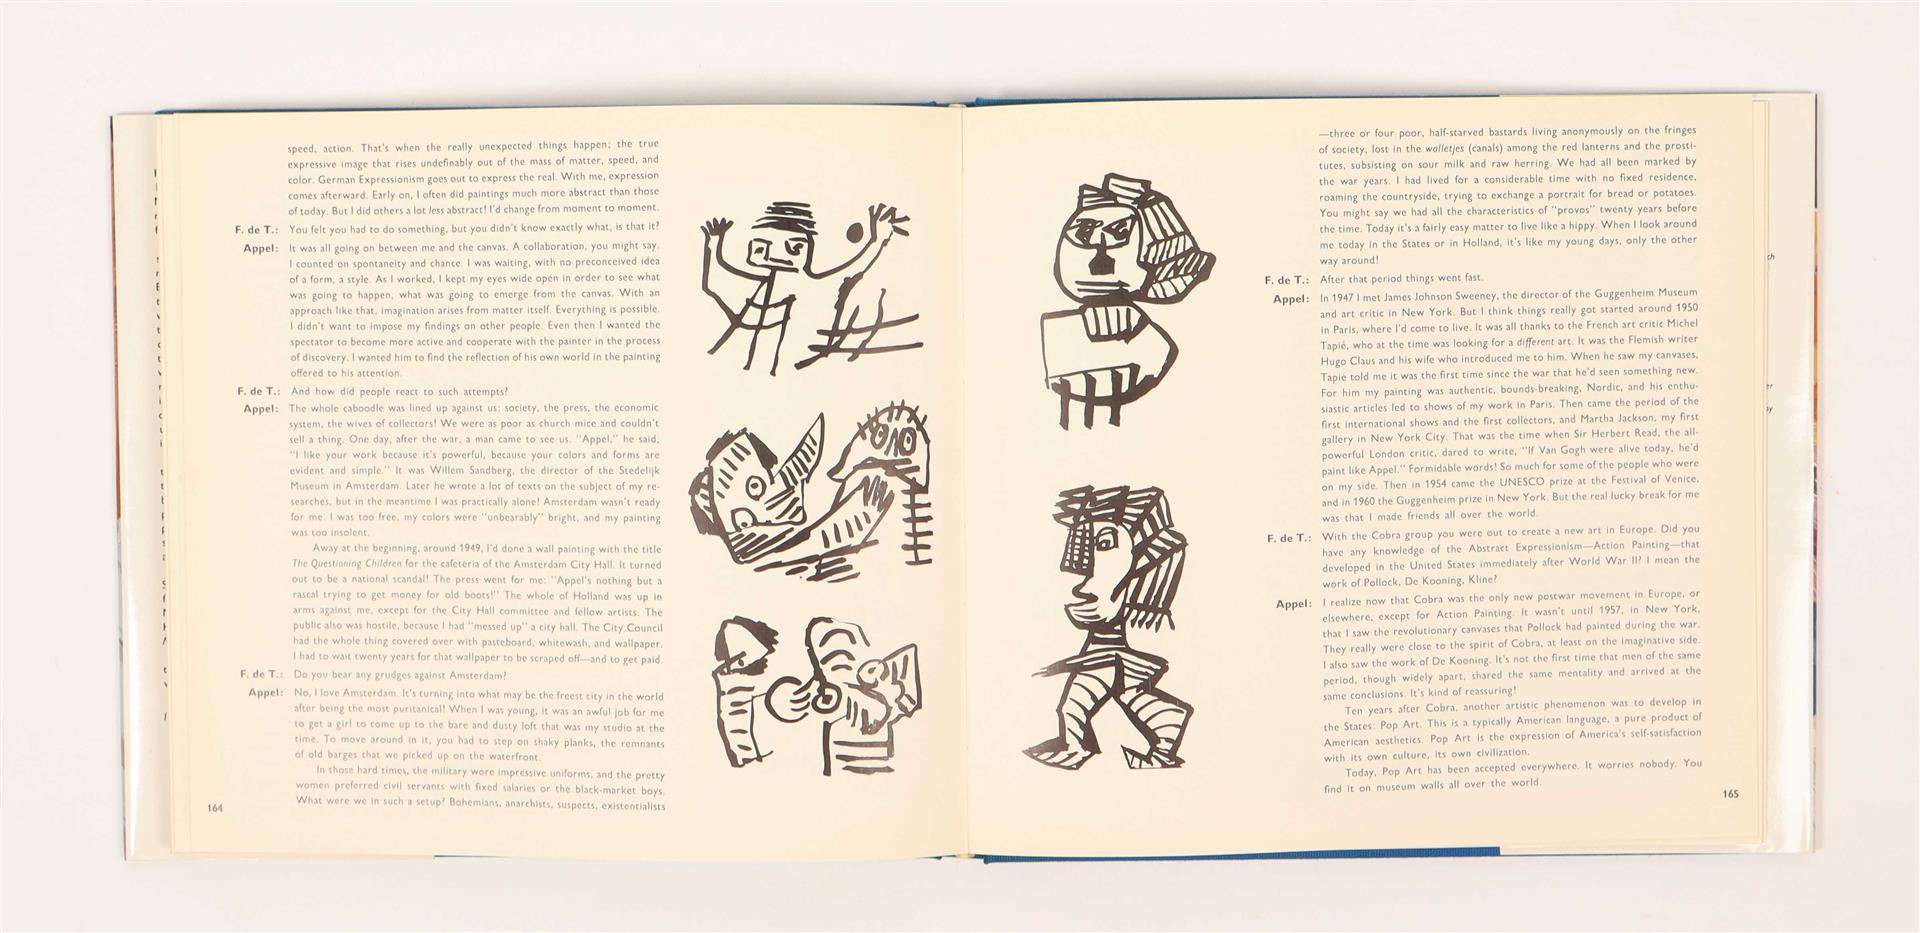 speed, action. That's when the really unexpected things happen; the true
expressive image that rises undefinably out of the mass of matter, speed, and
color. German Expressionism goes out to express the real. With me, expression
comes afterward. Early on, I often did paintings much more abstract than those
of today. But I did others a lot less abstract! I'd change from moment to moment.
F. de T.: You felt you had to do something, but you didn't know exactly what, is that it?
Appel: It was all going on between me and the canvas. A collaboration, you might say.
I counted on spontaneity and chance. I was waiting, with no preconceived idea
of a form, a style. As I worked, I kept my eyes wide open in order to see what
was going to happen, what was going to emerge from the canvas. With an
approach like that, imagination arises from matter itself. Everything is possible.
I didn't want to impose my findings on other people. Even then I wanted the
spectator to become more active and cooperate with the painter in the process
of discovery. I wanted him to find the reflection of his own world in the painting
offered to his attention.
F. de T.: And how did people react to such attempts?
Appel: The whole caboodle was lined up against us: society, the press, the economic
system, the wives of collectors! We were as poor as church mice and couldn't
sell a thing. One day, after the war, a man came to see us. "Appel," he said,
"I like your work because it's powerful, because your colors and forms are
evident and simple." It was Willem Sandberg, the director of the Stedelijk
Museum in Amsterdam. Later he wrote a lot of texts on the subject of my re-
searches, but in the meantime I was practically alone! Amsterdam wasn't ready
for me. I was too free, my colors were "unbearably" bright, and my painting
was too insolent.
Away at the beginning, around 1949, I'd done a wall painting with the title
The Questioning Children for the cafeteria of the Amsterdam City Hall. It turned
out to be a national scandal! The press went for me: "Appel's nothing but a
rascal trying to get money for old boots!" The whole of Holland was up in
arms against me, except for the City Hall committee and fellow artists. The
public also was hostile, because I had "messed up" a city hall. The City Council
had the whole thing covered over with pasteboard, whitewash, and wallpaper.
I had to wait twenty years for that wallpaper to be scraped off—and to get paid.
F. de T.: Do you bear any grudges against Amsterdam?
Appel: No, I love Amsterdam. It's turning into what may be the freest city in the world
after being the most puritanical! When I was young, it was an awful job for me
to get a girl to come up to the bare and dusty loft that was my studio at the
time. To move around in it, you had to step on shaky planks, the remnants
of old barges that we picked up on the waterfront.
In those hard times, the military wore impressive uniforms, and the pretty
women preferred civil servants with fixed salaries or the black-market boys.
What were we in such a setup? Bohemians, anarchists, suspects, existentialists
164
—three or four poor, half-starved bastards living anonymously on the fringes
of society, lost in the walletjes (canals) among the red lanterns and the prosti-
tutes, subsisting on sour milk and raw herring. We had all been marked by
the war years. I had lived for a considerable time with no fixed residence,
roaming the countryside, trying to exchange a portrait for bread or potatoes.
You might say we had all the characteristics of "provos" twenty years before
the time. Today it's a fairly easy matter to live like a hippy. When I look around
me today in the States or in Holland, it's like my young days, only the other
way around!
F. de T.: After that period things went fast.
Appel: In 1947 I met James Johnson Sweeney, the director of the Guggenheim Museum
and art critic in New York. But I think things really got started around 1950
in Paris, where I'd come to live. It was all thanks to the French art critic Michel
Tapié, who at the time was looking for a different art. It was the Flemish writer
Hugo Claus and his wife who introduced me to him. When he saw my canvases,
Tapié told me it was the first time since the war that he'd seen something new.
For him my painting was authentic, bounds-breaking, Nordic, and his enthu-
siastic articles led to shows of my work in Paris. Then came the period of the
first international shows and the first collectors, and Martha Jackson, my first
gallery in New York City. That was the time when Sir Herbert Read, the all-
powerful London critic, dared to write, "If Van Gogh were alive today, he'd
paint like Appel." Formidable words! So much for some of the people who were
on my side. Then in 1954 came the UNESCO prize at the Festival of Venice,
and in 1960 the Guggenheim prize in New York. But the real lucky break for me
was that I made friends all over the world.
F. de T.: With the Cobra group you were out to create a new art in Europe. Did you
have any knowledge of the Abstract Expressionism—Action Painting—that
developed in the United States immediately after World War II? I mean the
work of Pollock, De Kooning, Kline?
Appel: I realize now that Cobra was the only new postwar movement in Europe, or
elsewhere, except for Action Painting. It wasn't until 1957, in New York,
that I saw the revolutionary canvases that Pollock had painted during the war.
They really were close to the spirit of Cobra, at least on the imaginative side.
I also saw the work of De Kooning. It's not the first time that men of the same
period, though widely apart, shared the same mentality and arrived at the
same conclusions. It's kind of reassuring!
Ten years after Cobra, another artistic phenomenon was to develop in
the States: Pop Art. This is a typically American language, a pure product of
American aesthetics. Pop Art is the expression of America's self-satisfaction
with its own culture, its own civilization.
Today, Pop Art has been accepted everywhere. It worries nobody. You
find it on museum walls all over the world.
165